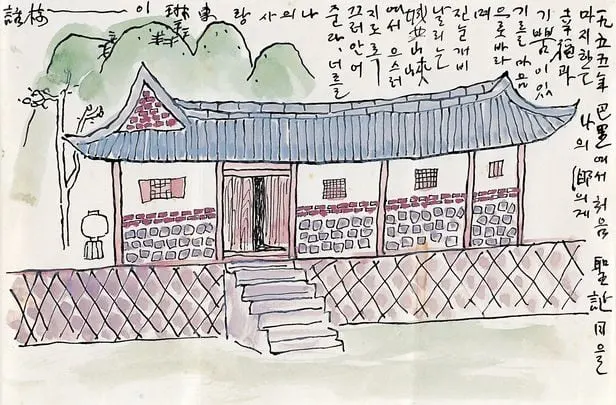 一九五五年 巴里에서 처음 聖誕日을
맞이하는 나의 鄕의게
幸福과
기쁨이 있
기를 마음
으로 바라
며
진눈개비
날리는
城北山峽
에서 으스러
지도록
끄러안어
준다. 너를
나의사랑 東琳이 —— 樹話